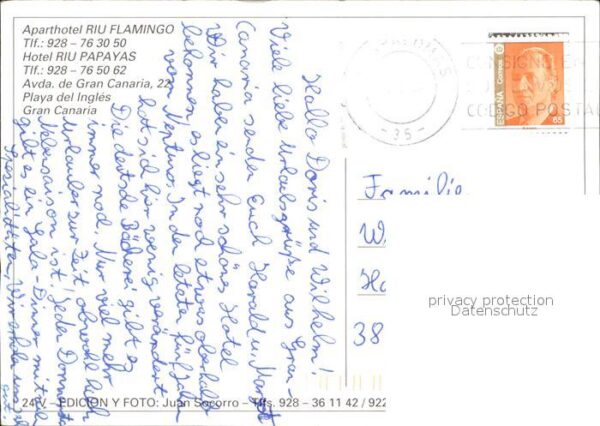 Aparthotel RIU FLAMINGO
Tlf.: 928 – 76 30 50
Hotel RIU PAPAYAS
Tlf.: 928 – 76 50 62
Avda. de Gran Canaria, 22
Playa del Inglés
Gran Canaria
Hallo Doris und Wilhelm!
Viele liebe Urlaubsgrüße aus Gran-
Canaria senden Euch Harald u. Margot
Wir haben ein sehr schönes Hotel
bekommen, es liegt noch etwas oberhalb
vom Neptuno. In den letzten fünf Jahren
hat sich hier wenig verändert
Die deutsche Bäckerei gibt es
immer noch. Nur viel mehr
Urlauber zur Zeit obwohl hier
Nebensaison ist! Jeden Donnerstag
gibt es ein Gala-Dinner mit
Spezialitäten. Wir
gut!
CODIGO POSTAL
- 35 -
ESPAÑA
Correos
65
Familie
W
Ha
38
privacy protection
Datenschutz
24-V – EDICION Y FOTO: Juan Socorro – Tlfs. 928 – 36 11 42 / 922